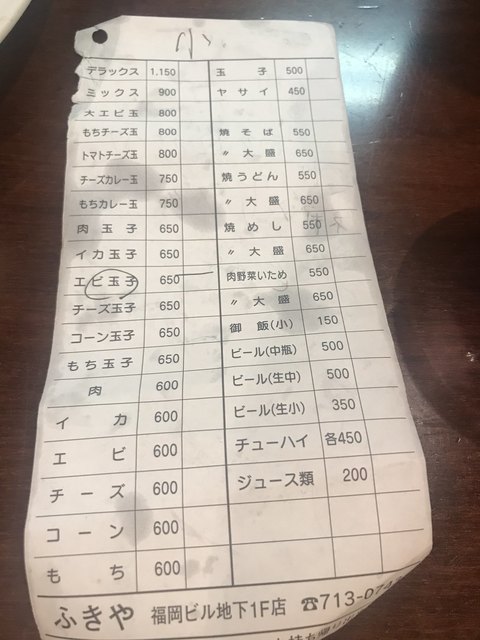 小
デラックス 1.150 玉子 500
ミックス 900 ヤサイ 450
大エビ玉 800
もちチーズ玉 800 焼そば 550
トマトチーズ玉 800 〃 大盛 650
チーズカレー玉 750 焼うどん 550
もちカレー玉 750 〃 大盛 650
肉玉子 650 焼めし 550
イカ玉子 650 〃 大盛 650
エビ玉子 650 肉野菜いため 550
チーズ玉子 650 〃 大盛 650
コーン玉子 650 御飯(小) 150
もち玉子 650 ビール(中瓶) 500
肉 600 ビール(生中) 500
イカ 600 ビール(生小) 350
エビ 600 チューハイ 各450
チーズ 600 ジュース類 200
コーン 600
もち 600
ふきや 福岡ビル地下1F店 ☎713-0